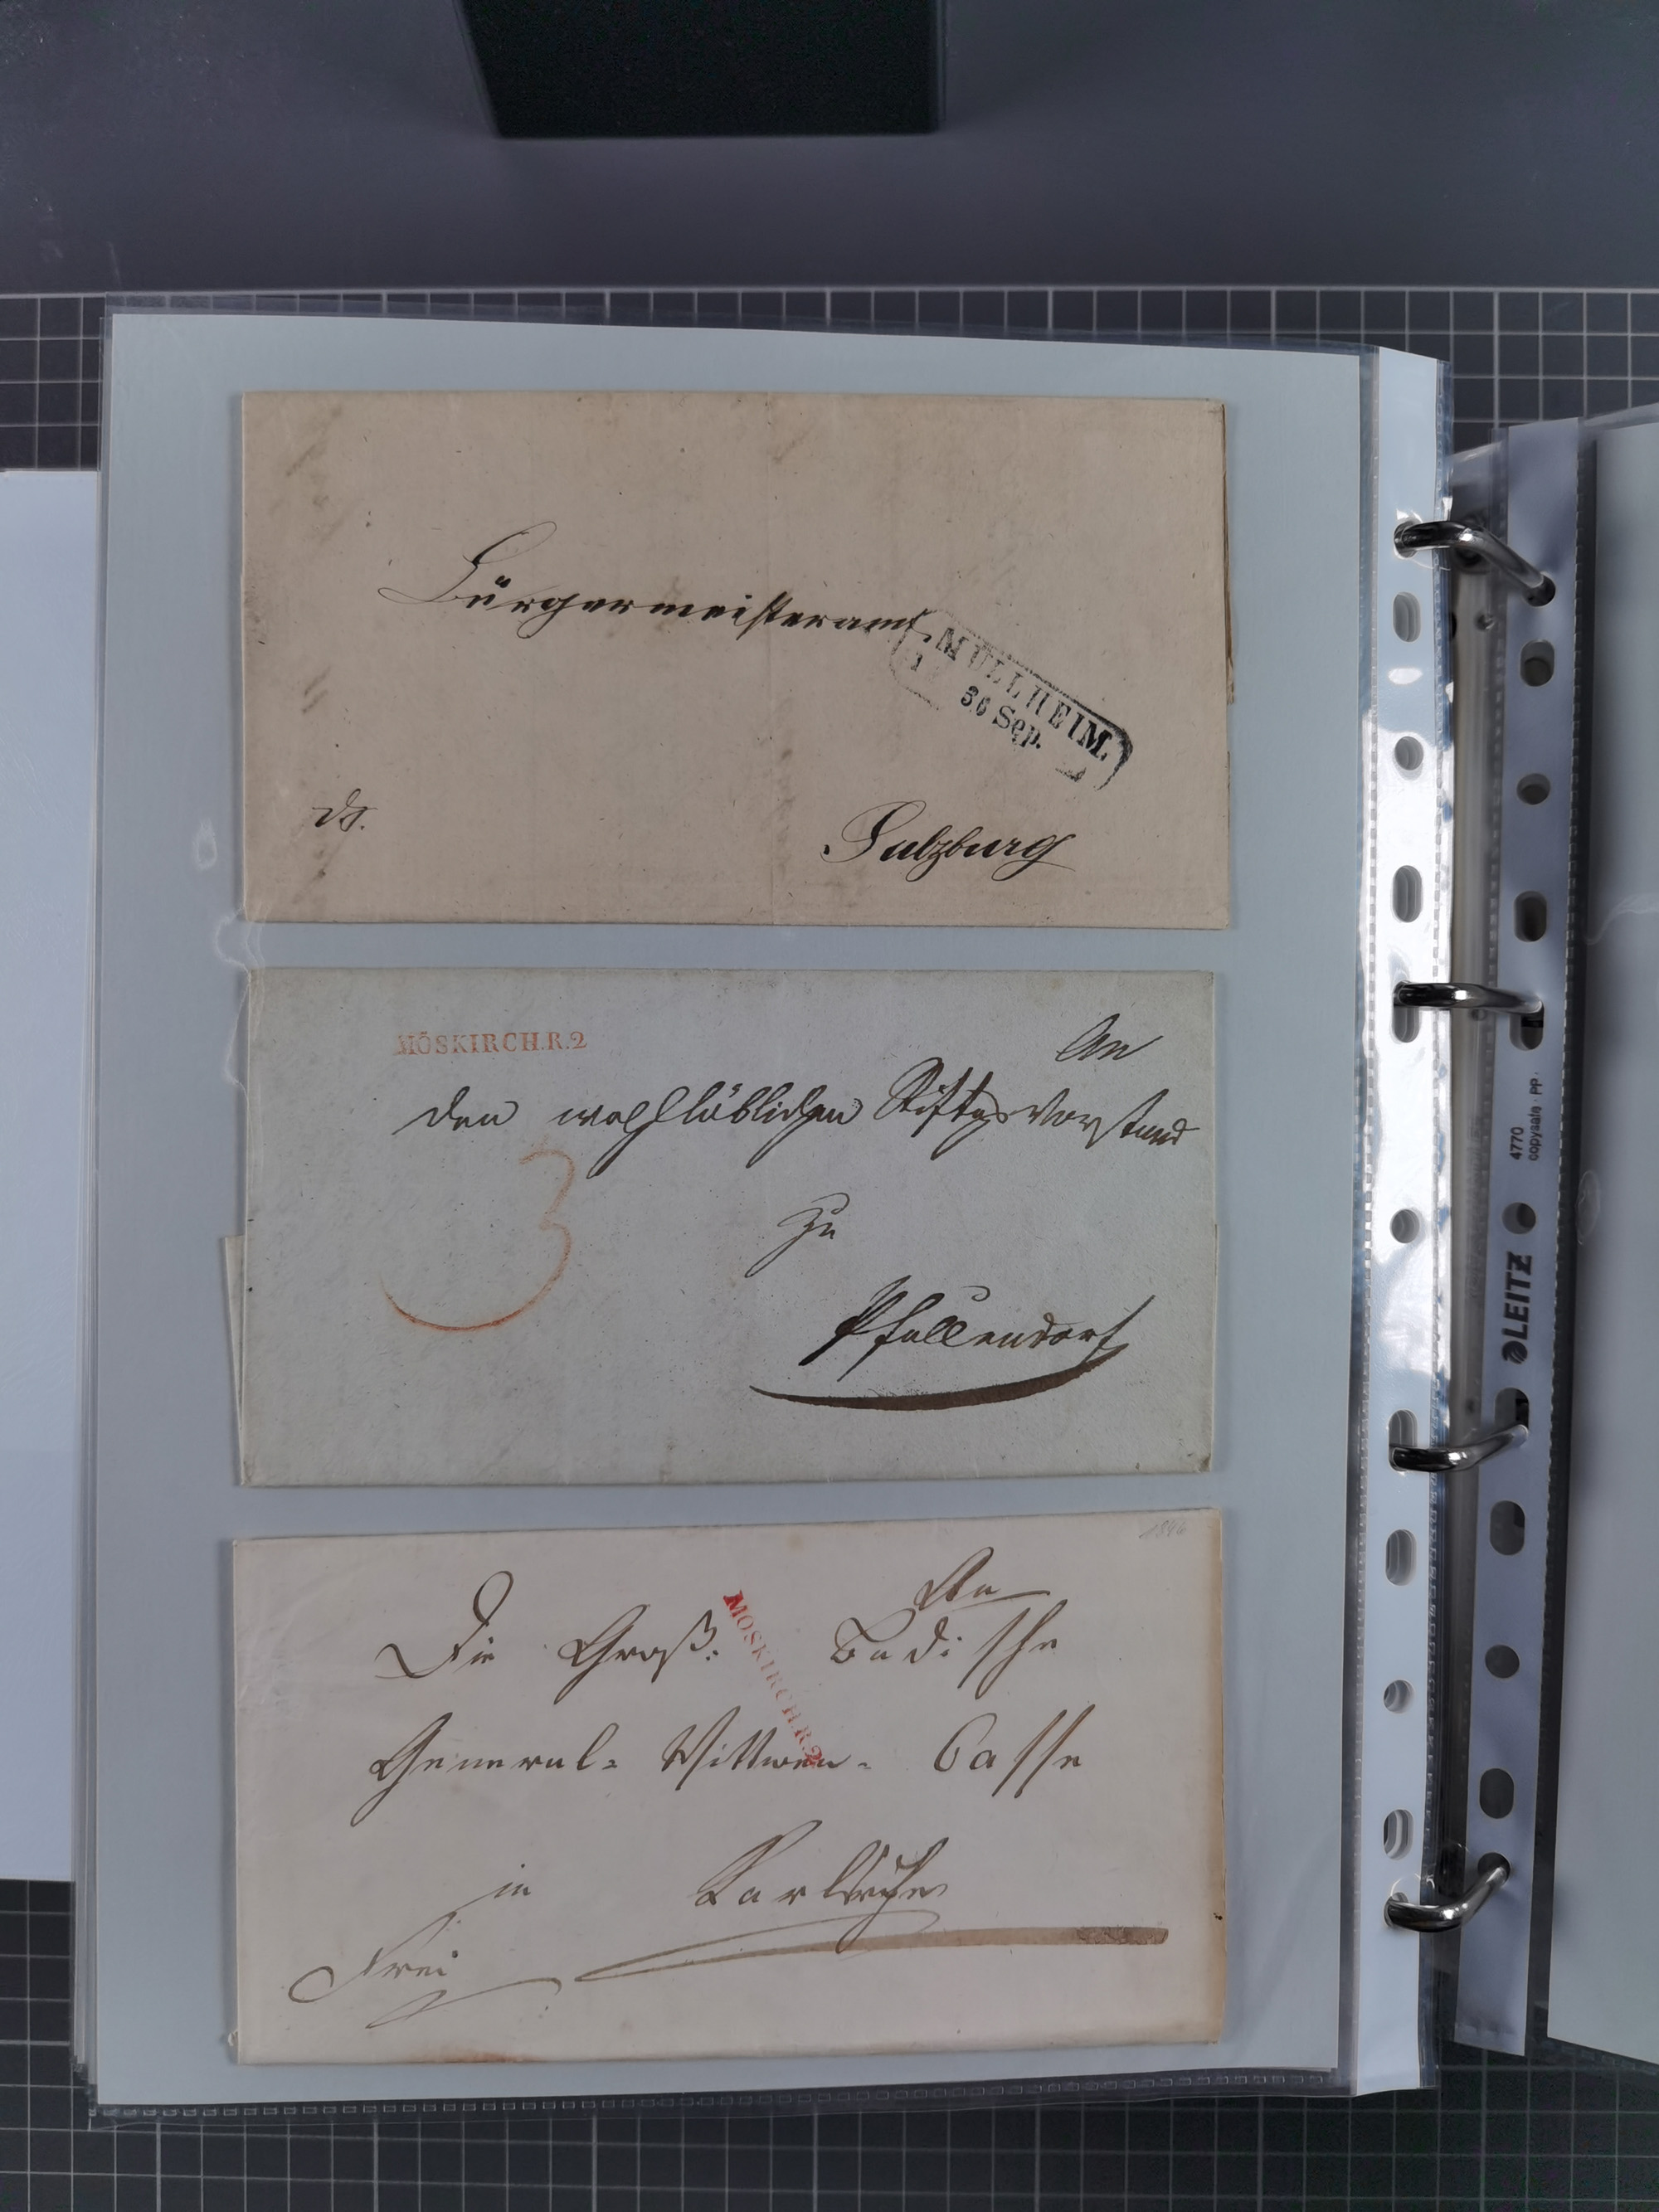 Bürgermeisteramt
MÜLLHEIM.
30 Sep.
ds.
Sulzburg
MÖSKIRCH.R.2
An
den wohllöblichen Stiftgs Vorstand
3
zu
Pfullendorf
1846
An
Die Groß: Badische
MÖSKIRCH.R.2
General- Wittwen- Casse
in Karlsruhe
Frei
4770
copysafe · PP
LEITZ